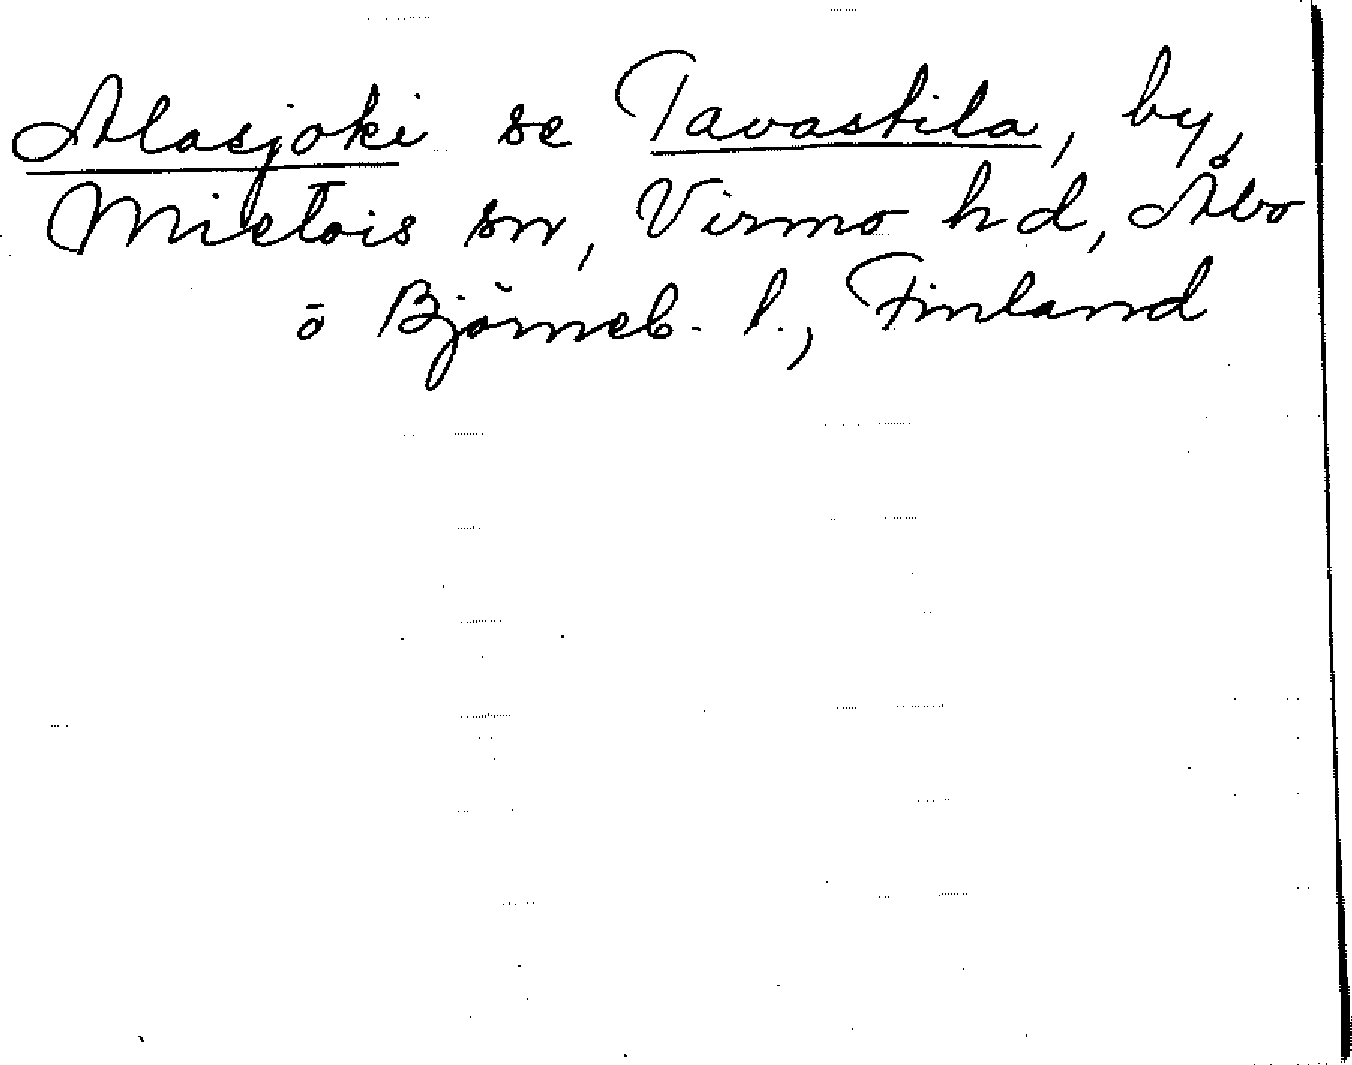 Alasjoki se Tavastila, by,
Mietois sn, Virmo hd, Åbo
o Björneb. l., Finland